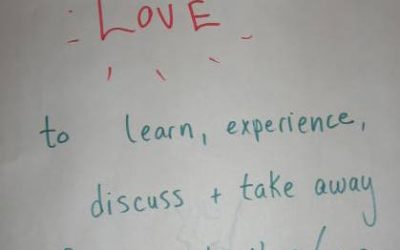 LOVE
to learn, experience,
discuss + take away